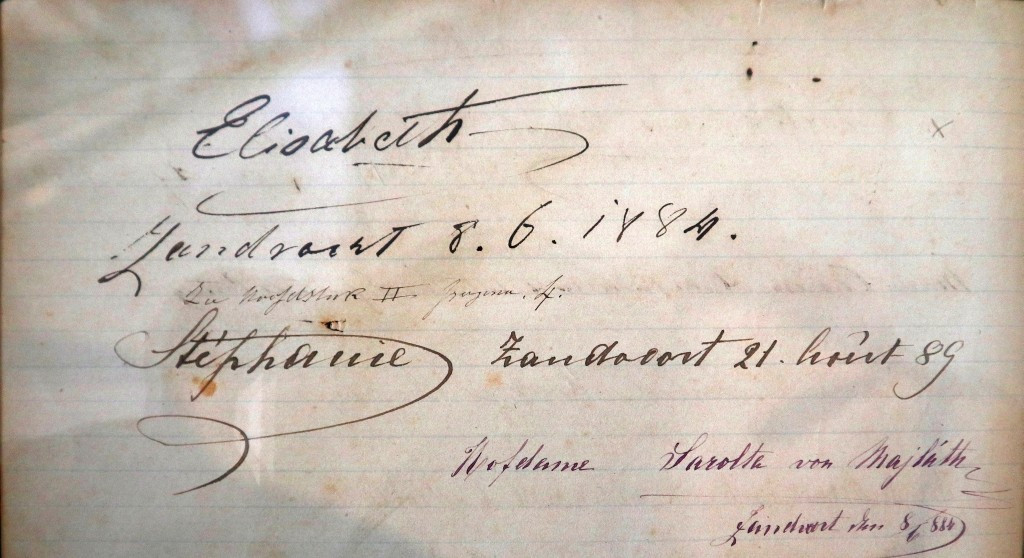 Elisabeth
Zandvoort 8. 6. 1884.
Zie Hoofdstuk II
Stéphanie Zandvoort 21. Août 89
Hofdame Sarolta von Majláth
Zandvort den 8/6 884